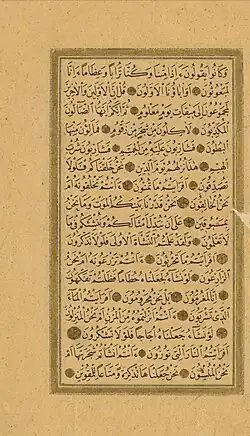 وَكَانُوا يَقُولُونَ أَئِذَا مِتْنَا وَكُنَّا تُرَابًا وَعِظَامًا ءَإِنَّا
لَمَبْعُوثُونَ أَوَآبَاؤُنَا الْأَوَّلُونَ قُلْ إِنَّ الْأَوَّلِينَ وَالْآخِرِينَ
لَمَجْمُوعُونَ إِلَى مِيقَاتِ يَوْمٍ مَعْلُومٍ ثُمَّ إِنَّكُمْ أَيُّهَا الضَّالُّونَ
الْمُكَذِّبُونَ لَآكِلُونَ مِنْ شَجَرٍ مِنْ زَقُّومٍ فَمَالِؤُنَ مِنْهَا
الْبُطُونَ فَشَارِبُونَ عَلَيْهِ مِنَ الْحَمِيمِ فَشَارِبُونَ شُرْبَ
الْهِيمِ هَذَا نُزُلُهُمْ يَوْمَ الدِّينِ نَحْنُ خَلَقْنَاكُمْ فَلَوْلَا
تُصَدِّقُونَ أَفَرَأَيْتُمْ مَا تُمْنُونَ ءَأَنْتُمْ تَخْلُقُونَهُ أَمْ
نَحْنُ الْخَالِقُونَ نَحْنُ قَدَّرْنَا بَيْنَكُمُ الْمَوْتَ وَمَا نَحْنُ
بِمَسْبُوقِينَ عَلَى أَنْ نُبَدِّلَ أَمْثَالَكُمْ وَنُنْشِئَكُمْ فِي مَا
لَا تَعْلَمُونَ وَلَقَدْ عَلِمْتُمُ النَّشْأَةَ الْأُولَى فَلَوْلَا تَذَكَّرُونَ
أَفَرَأَيْتُمْ مَا تَحْرُثُونَ ءَأَنْتُمْ تَزْرَعُونَهُ أَمْ نَحْنُ
الزَّارِعُونَ لَوْ نَشَاءُ لَجَعَلْنَاهُ حُطَامًا فَظَلْتُمْ تَفَكَّهُونَ
إِنَّا لَمُغْرَمُونَ بَلْ نَحْنُ مَحْرُومُونَ أَفَرَأَيْتُمُ الْمَاءَ
الَّذِي تَشْرَبُونَ ءَأَنْتُمْ أَنْزَلْتُمُوهُ مِنَ الْمُزْنِ أَمْ نَحْنُ الْمُنْزِلُونَ
لَوْ نَشَاءُ جَعَلْنَاهُ أُجَاجًا فَلَوْلَا تَشْكُرُونَ
أَفَرَأَيْتُمُ النَّارَ الَّتِي تُورُونَ ءَأَنْتُمْ أَنْشَأْتُمْ شَجَرَتَهَا أَمْ
نَحْنُ الْمُنْشِؤُنَ نَحْنُ جَعَلْنَاهَا تَذْكِرَةً وَمَتَاعًا لِلْمُقْوِينَ